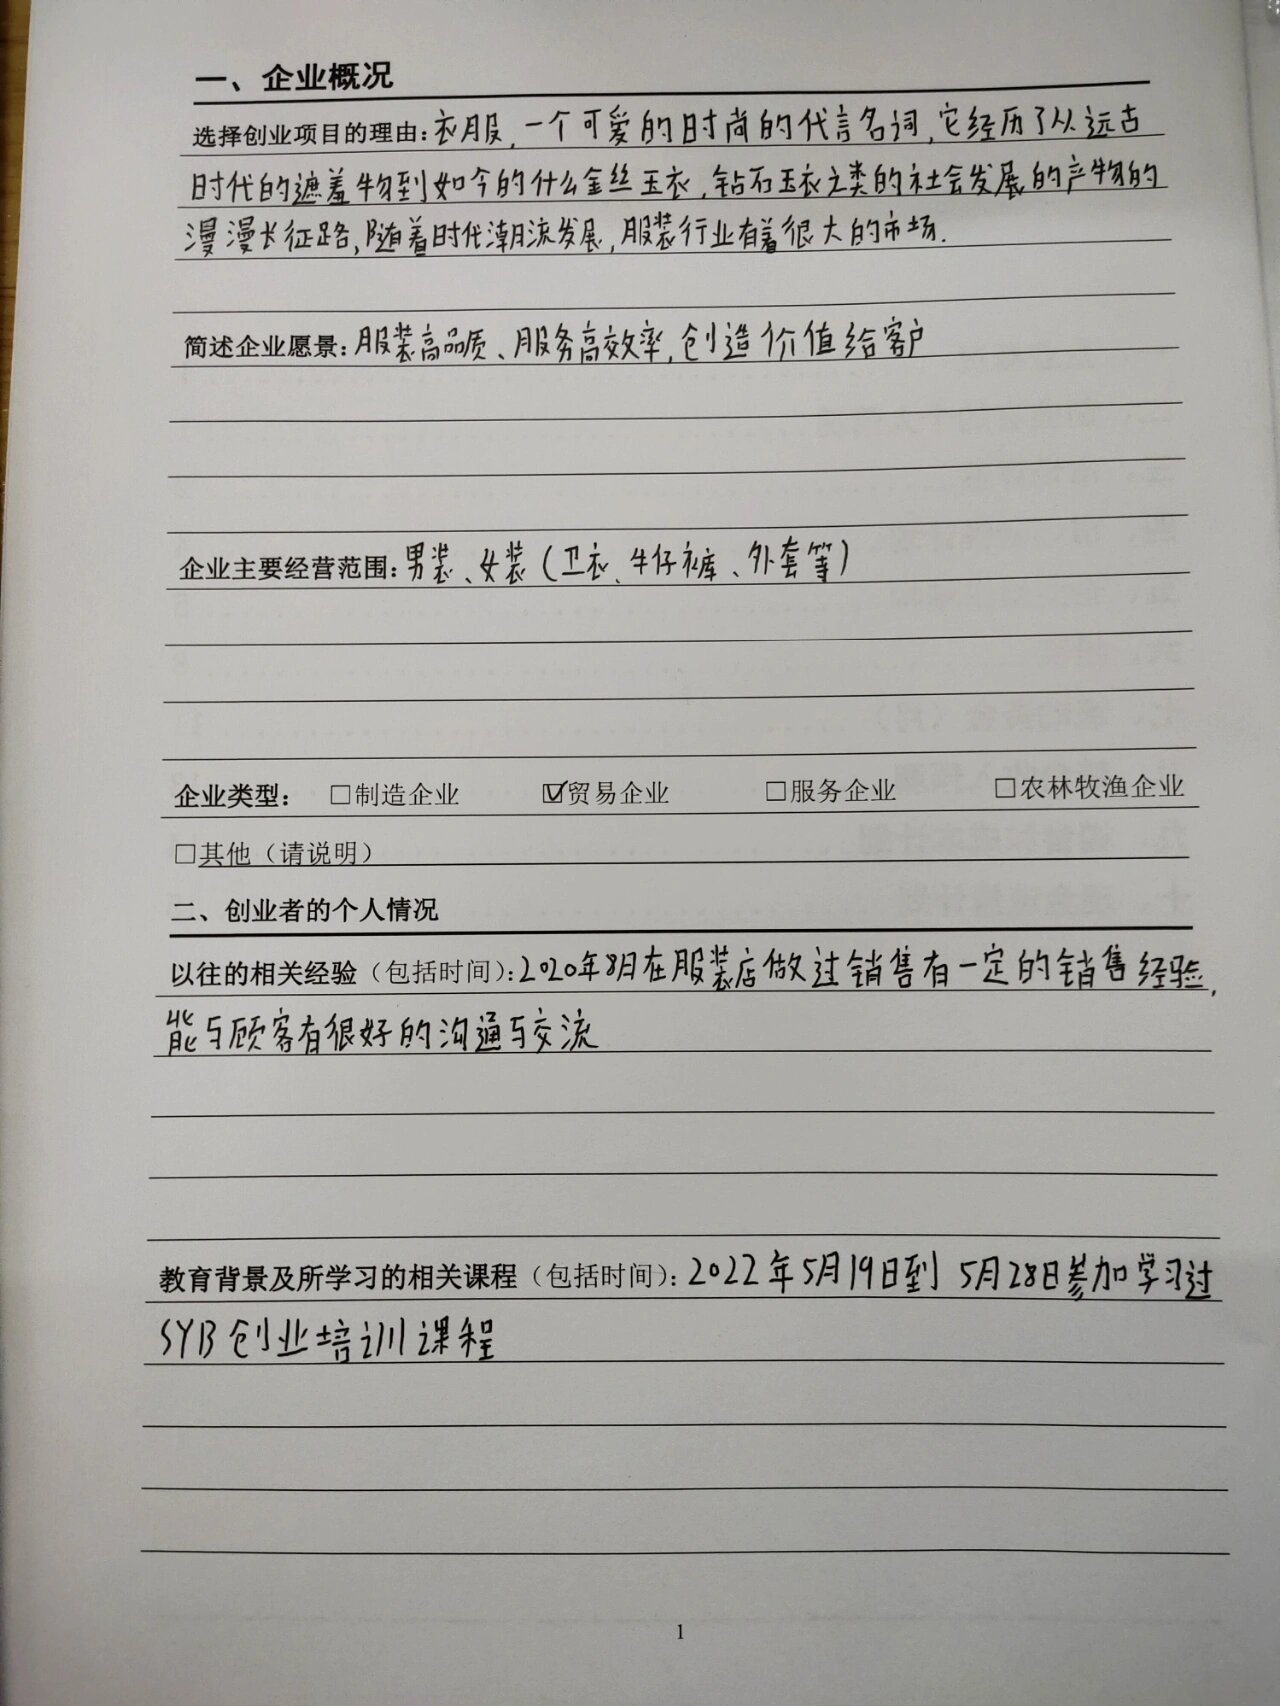 一、企业概况
选择创业项目的理由:衣服,一个可爱的时尚的代言名词,它经历了从远古
时代的遮羞物到如今的什么金丝玉衣,钻石玉衣之类的社会发展的产物的
漫漫长征路,随着时代潮流发展,服装行业有着很大的市场.
简述企业愿景:服装高品质、服务高效率,创造价值给客户
企业主要经营范围:男装、女装(卫衣、牛仔裤、外套等)
企业类型: □制造企业 ☑贸易企业 □服务企业 □农林牧渔企业
□其他(请说明)
二、创业者的个人情况
以往的相关经验(包括时间):2020年8月在服装店做过销售有一定的销售经验,
能与顾客有很好的沟通与交流
教育背景及所学习的相关课程(包括时间):2022年5月19日到5月28日参加学习过
SYB创业培训课程
1